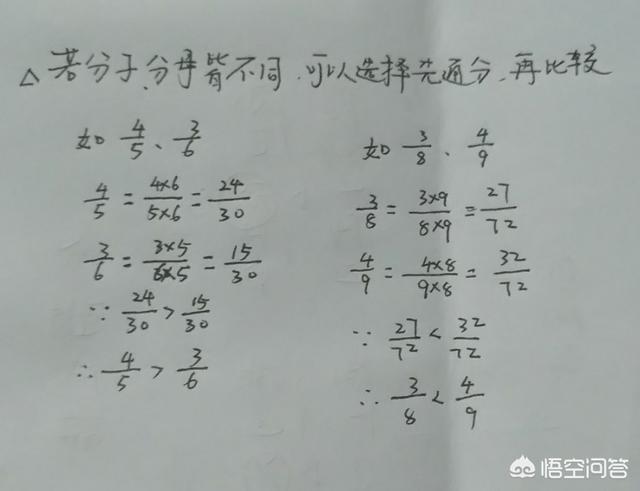 △若分子、分母皆不同，可以选择先通分，再比较
如 4/5、3/6
4/5 = 4×6/5×6 = 24/30
3/6 = 3×5/6×5 = 15/30
∵ 24/30 > 15/30
∴ 4/5 > 3/6
如 3/8、4/9
3/8 = 3×9/8×9 = 27/72
4/9 = 4×8/9×8 = 32/72
∵ 27/72 < 32/72
∴ 3/8 < 4/9
悟空问答